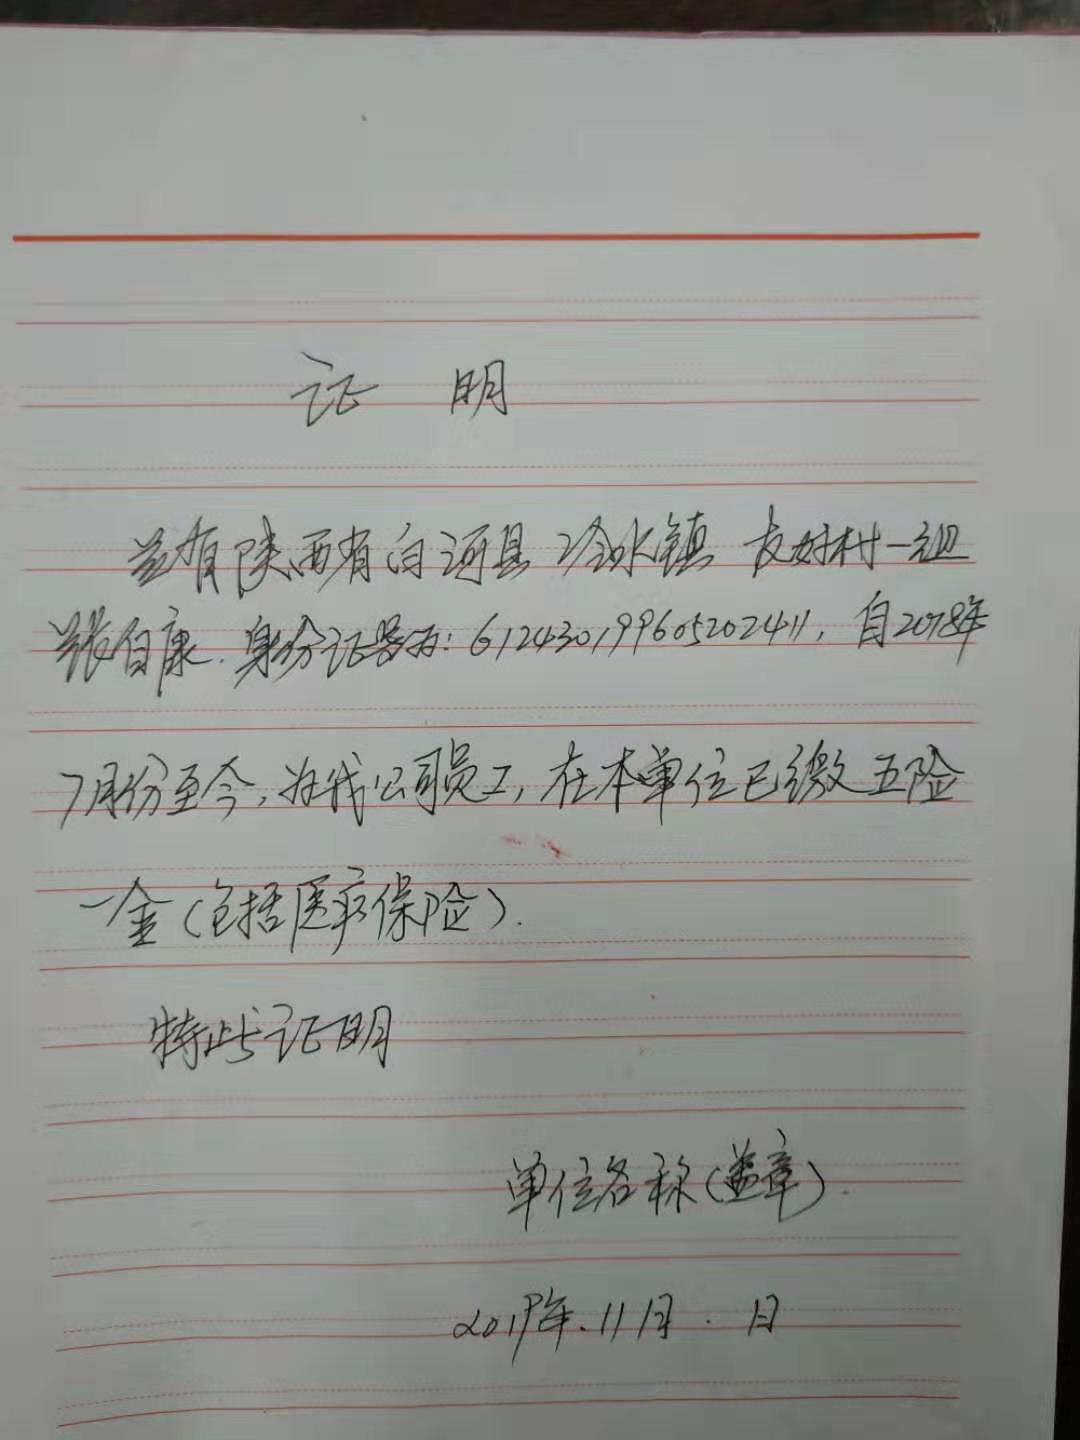 证 明
兹有陕西省白河县冷水镇友好村一组
张自康.身份证号为:612430199605202411,自2018年
7月份至今,为我公司员工,在本单位已缴五险
一金(包括医疗保险).
特此证明
单位名称(盖章).
2019年.11月.日